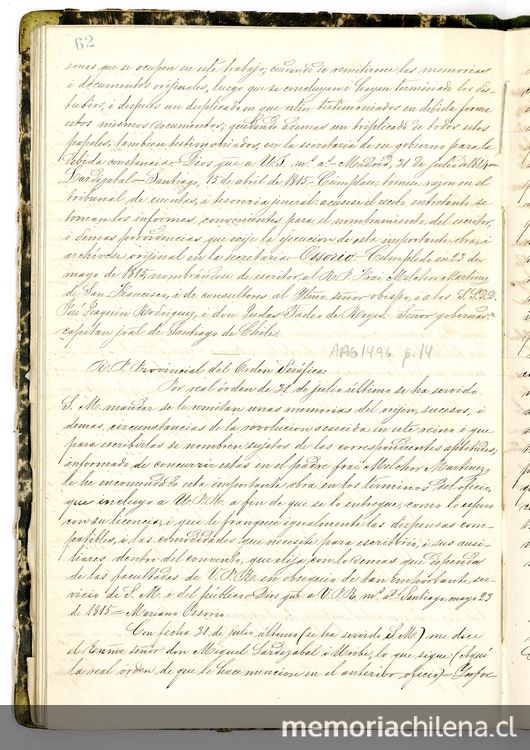 62
sonas que se ocupen en este trabajo, cuidando de remitirme las memorias
i documentos orijinales, luego que se concluyan i hayan terminado los dis-
turbios, i despues un duplicado en que esten testimoniados en debida forma
estos mismos documentos; quedando ademas un triplicado de todos estos
papeles, tambien testimoniados, en la secretaria de su gobierno para la
debida constancia. Dios gue. a U.S. ms. as. Madrid, 31 de julio de 1814=
Lardizabal= Santiago, 15 de abril de 1815= Cúmplase; tómese razon en el
tribunal de cuentas, i tesorería jeneral: acúsese el recibo, entretanto se
toman los informes convenientes para el nombramiento del escritor,
i demas providencias que exije la ejecucion de esta importante obra, i
archívese orijinal en la secretaria= Ossorio= Cumplido en 23 de
mayo de 1815, nombrándose de escritor al R. P. Frai Melchor Martinez
de San Francisco, i de consultores al Iltmo. señor obispo, i a los S.S.D.D.
José Joaquin Rodriguez, i don Judas Tadeo de Reyes. Señor gobernador
capitan jral. de Santiago de Chile.
AAG1496 p. 14
R. P. Provincial del Orden Seráfica.
Por real órden de 31 de julio último se ha servido
S. M. mandar se le remitan unas memorias del oríjen, sucesos, i
demas circunstancias de la revolucion acaecida en este reino i que
para escribirlas se nombren sujetos de las correspondientes aptitudes;
informado de concurrir estas en el padre frai Melchor Martinez,
le he encomendado esta importante obra en los términos del oficio,
que incluyo a U.P.R. a fin de que se lo entregue, como lo espero
con su licencia, i que le franquee igualmente las dispensas com-
patibles, i las comodidades que necesite para escritorio, i sus ausi-
liares dentro del convento, que elija, con lo demas que dependa
de las facultades de U.P.R. en obsequio de tan importante ser-
vicio de S. M. i del público= Dios gue. a U.P.R. ms. as. Santiago, mayo 23
de 1815= Mariano Ossorio.
Con fecha 31 de julio último (se ha servido S. M.) me dice
el Exmo señor don Miguel Lardizabal i Uribe, lo que sigue (Aquí
la real órden de que se hace mencion en el anterior oficio)= Infor-
memoriachilena.cl